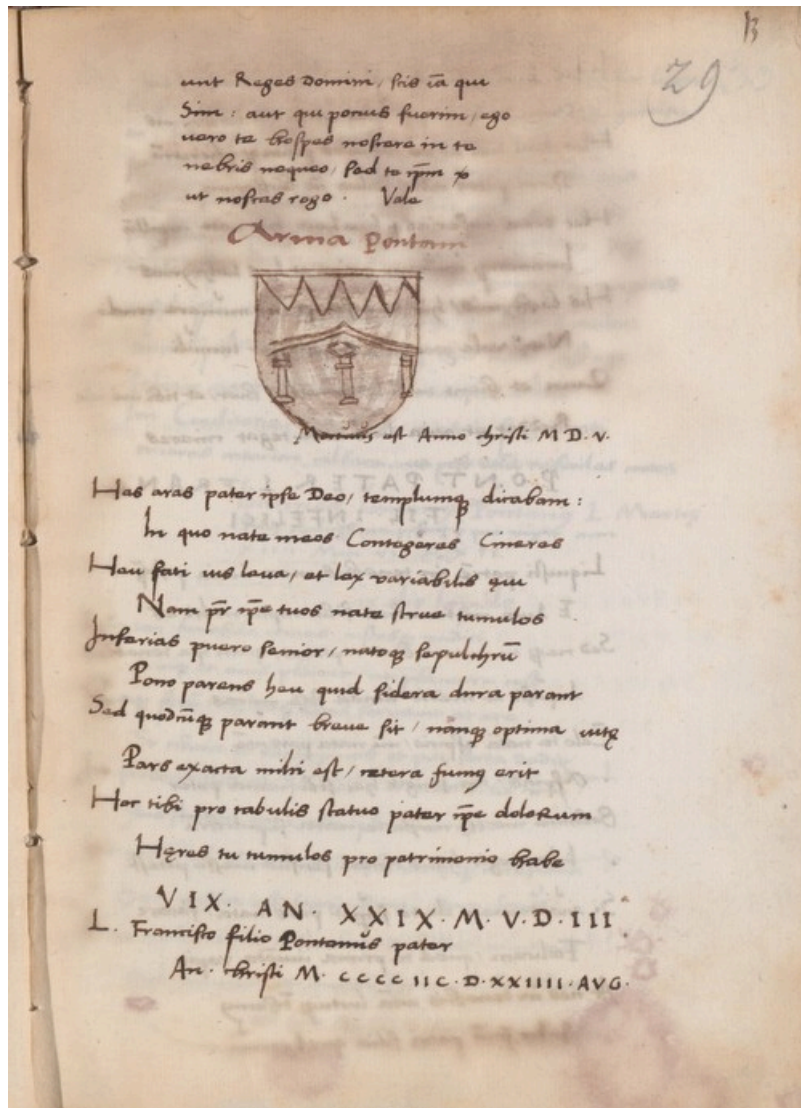 13
29
unt Reges Domini, scis iã qui
Sim: aut qui pocius fuerim, ego
vero te hospes noscere in te
nebris nequeo, sed te ip̃m
ut noscas rogo. Vale
Arma Pontani
Mortuus est Anno christi M D. V.
Has aras pater ipse Deo, templumqꝫ dicabam:
In quo nate meos Contegeres Cineres
Heu fati vis leva, et lex variabilis ęvi
Nam pr̃ ip̃e tuos nate strue tumulos
Inferias puero senior, natoqꝫ sepulchrũ
Pono parens heu quid sidera dura parant
Sed quodcũqꝫ parant breve sit, nanqꝫ optima vitę
Pars exacta mihi est, cetera funus erit
Hoc tibi pro tabulis statuo pater ip̃e dolorum
Hęres tu tumulos pro patrimonio habe
VIX. AN. XXIX. M. V. D. III
L. Francisco filio Pontanus pater
An. christi M. CCCC IIC. D. XXIIII. AUG.